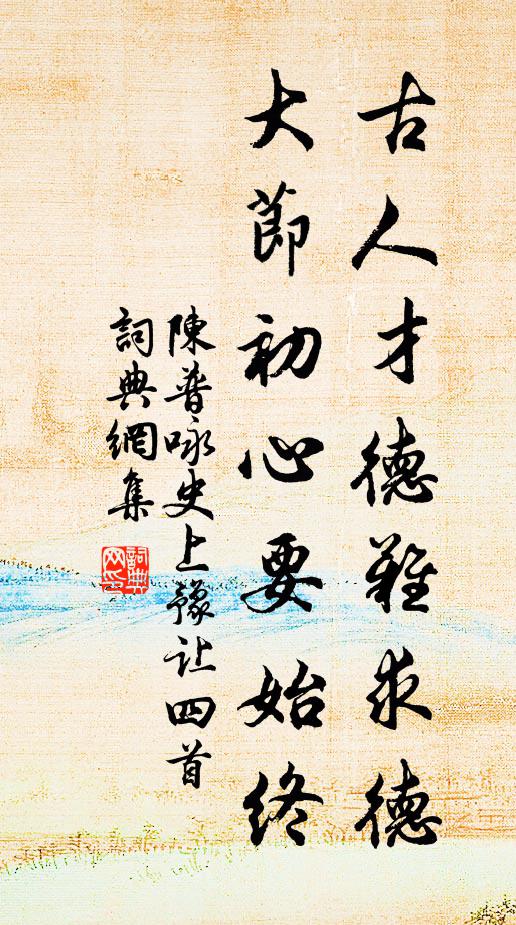 古人才德難求德
大節初心要始終
陳普咏史上豫让四首
詞典網集
詞典网印